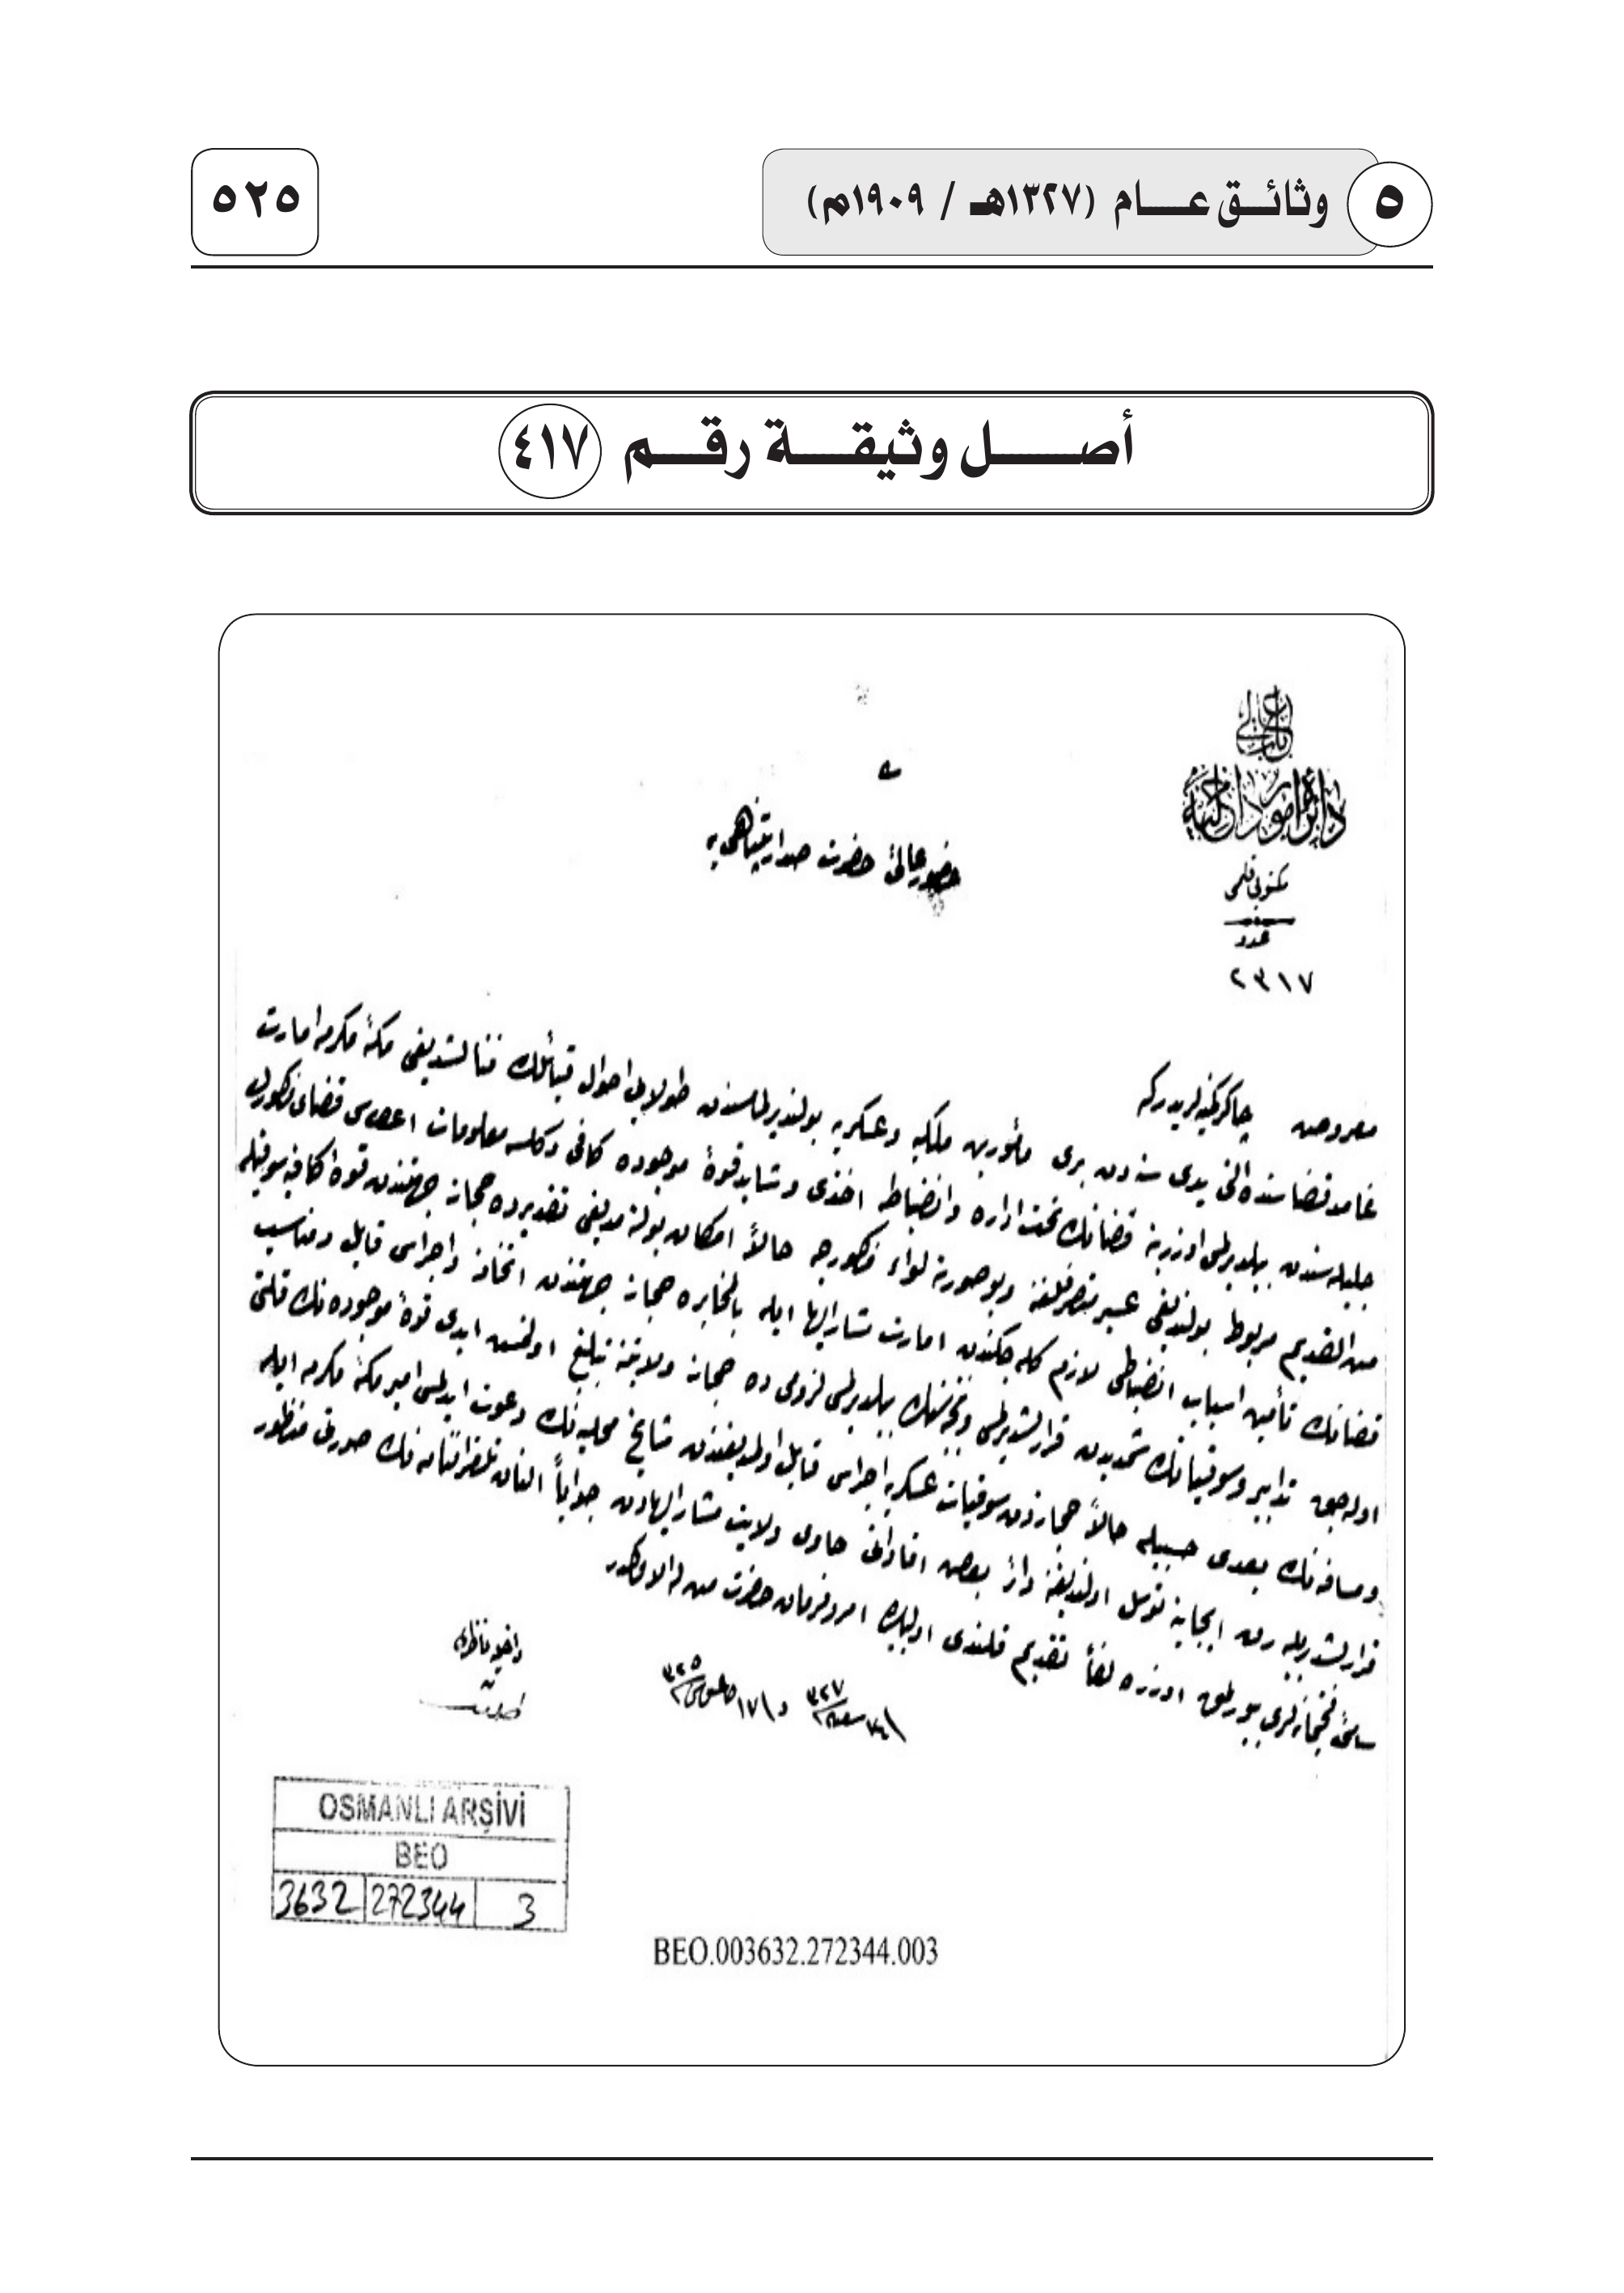 ٥ وثائق عام (١٣٢٧هـ / ١٩٠٩م)
٥٢٥
أصل وثيقة رقم ٤١٧
باب عالی
دائره امور داخلیه
مكتوبی قلمی
عدد
٢٣١٧
حضور عالئ حضرت صدارتپناهی یه
معروض چاکر کمینه لریدرکه
غامد قضاسنده التی یدی سنه دن بری مأمورین ملکیه وعسکریه بولندیرلماسندن طولایی احوال قبائلك فنالشدیغی مکۀ مکرمه امارت
جلیله سندن بیلدیرلمسی اوزرینه قضانك تحت اداره وانضباطه اخذی وشاید قوۀ موجوده کافی دکلسه معلومات اعطاسی قضای مذکورك
من القدیم مربوط بولندیغی عسیر متصرفلغنه وبوصورته لواء مذکورجه حالاً امکان بولنه مدیغی تقدیرده حجاز جهتندن قوۀ کافیه سوقیله
قضانك تأمین اسباب انضباطی لازم کله جکندن امارت مشارالیها ایله بالمخابره حجاز جهتندن اتخاذ واجراسی قابل ومناسب
اوله جق تدابیر وسوقیاتك تحدیدن قرارلشدیرلمسی ونتیجه سنك بیلدیرلمسی لزومی ده حجاز ولایتنه تبلیغ اولنمش ایدی قوۀ موجوده نك قلتی
ومسافه نك بعدی حسبیله حالاً حجازدن سوقیات عسکریه اجراسی قابل اولمدیغندن مشایخ محلیه نك دعوت ایدلمسی امیر مکۀ مکرمه ایله
قرارلشدیریله رق ایجابنه توسل اولندیغنه دائر بعض افاداتی حاوی ولایت مشارالیهادن جواباً النان تلغرافنامه نك صورتی منظور
سامئ فخیمانه لری بیورلمق اوزره لفاً تقدیم قلندی اولبابده امر وفرمان حضرت من له الامرکدر
داخلیه ناظری
طلعت
OSMANLI ARŞİVİ
BEO
3632 272344 3
BEO.003632.272344.003